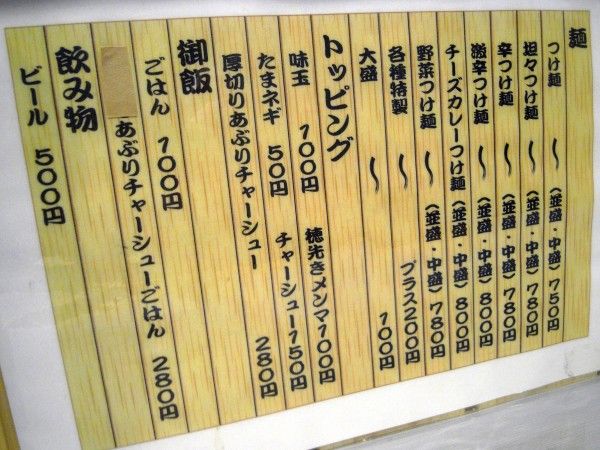 麺
つけ麺 〜 (並盛・中盛) 750円
坦々つけ麺 〜 (並盛・中盛) 780円
辛つけ麺 〜 (並盛・中盛) 780円
激辛つけ麺 〜 (並盛・中盛) 800円
チーズカレーつけ麺 (並盛・中盛) 800円
野菜つけ麺 〜 (並盛・中盛) 780円
各種特製 〜 プラス200円
大盛 〜 100円
トッピング
味玉 100円 穂先きメンマ100円
たまネギ 50円 チャーシュー150円
厚切りあぶりチャーシュー 280円
御飯
ごはん 100円
あぶりチャーシューごはん 280円
飲み物
ビール 500円